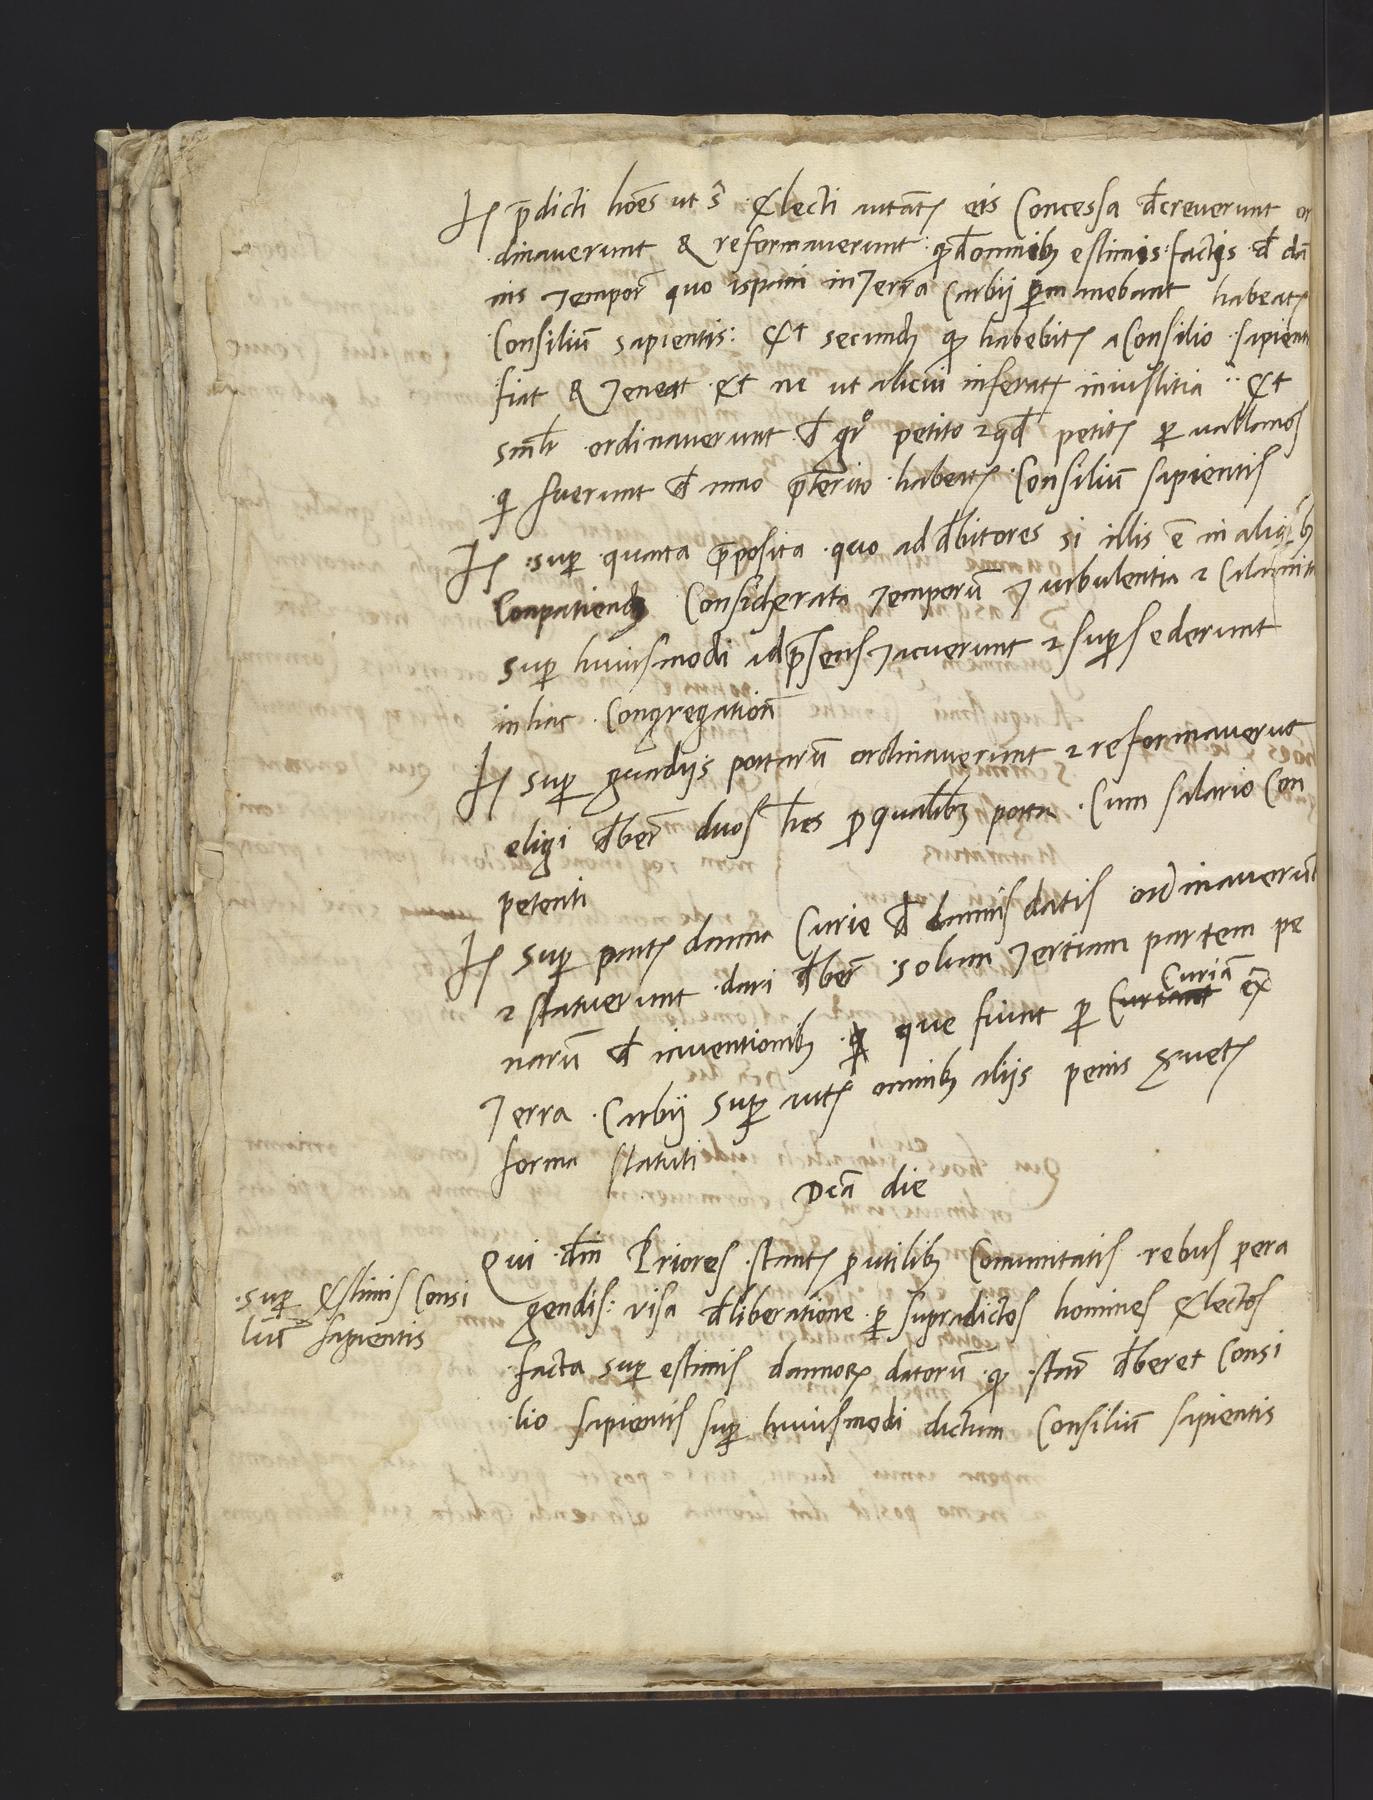 It p̄dicti hoēs ut s̄ Electi autāte eis Concessa dēcreverunt or
dinaverunt & reformaverunt: qđ omnibus estimis: factis dē dā
nis tempore quo ispani in Terra Carbij permanebant habeatur
Consiliū sapientis: Et secundum quod habebitur a Consilio sapient
fiat & teneat Et ne ut alicui inferatur iniustitia : Et
similr ordinaverunt de petito petitur per
qui fuerunt de mao preterito habeatur Consilium sapientis
It super quarta proposita quo ad dēbitores si illis ē in aliquibus
Conpatiendum Considerata temporū turbulentia & Calamita
super huiusmodi ad presens tacuerunt & supersederunt
in hac Congregatione
It super guardijs portarū ordinaverunt & reformaverūt
eligi deberē duos hōes pro qualibus porta Cum salario Con
petenti
It super parte danna Curie de damnis datis ordinaverūt
& statuerunt dari deberē solum tertiam partem pe
narū de inventionibus que fiunt per Curiam ex
Terra Carbij super autem omnibus alijs penis servetur
forma statuti
Dicā die
Qui dn̄i Priores stantes pro utilibus Comunitatis rebus pera
gendis: visa dēliberatione per supradictos homines Electos
facta super estimis dannorum datorū quod starē dēberet Consi
lio sapientis super huiusmodi dictum Consiliū sapientis
super Estimis Consi
liū sapientis